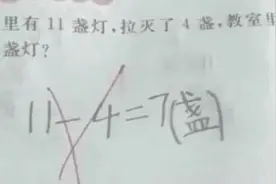 里有 11 盏灯,拉灭了 4 盏,教室里
盏灯?
11-4=7(盏)